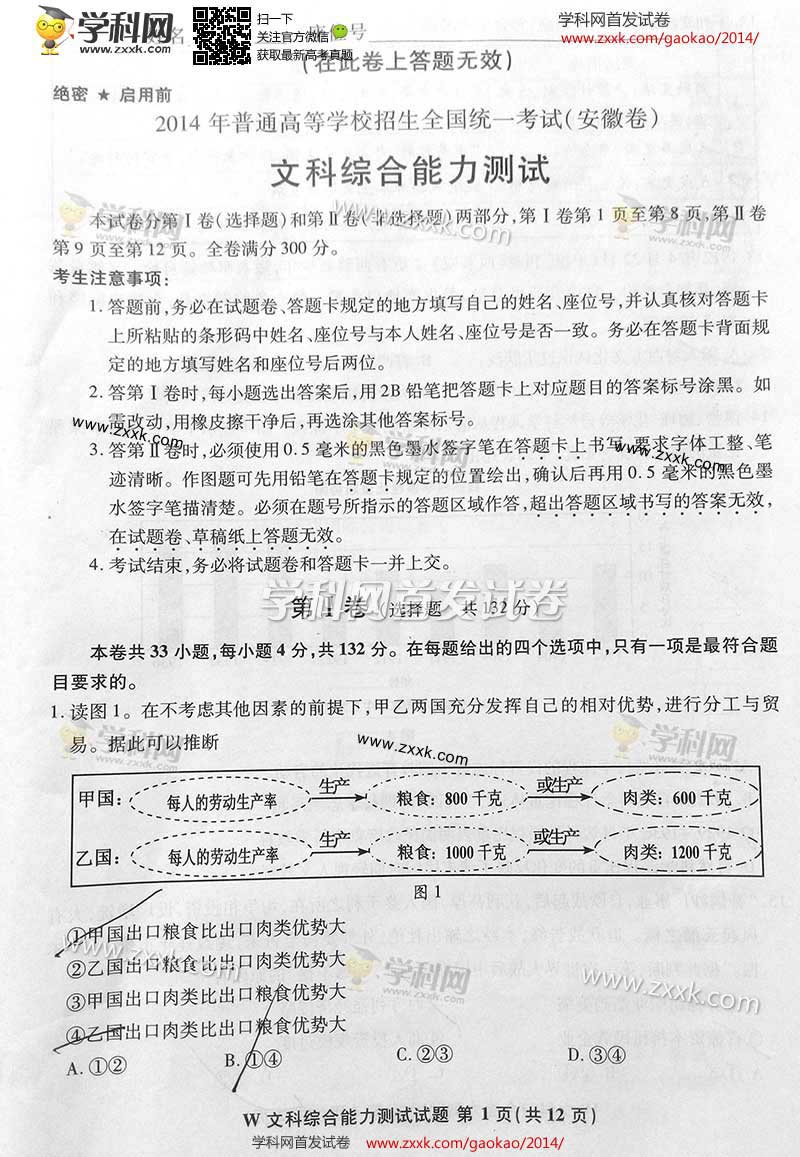 学科网
www.zxxk.com
扫一下
关注官方微信
获取最新高考真题
学科网首发试卷
www.zxxk.com/gaokao/2014/
座位号
(在此卷上答题无效)
绝密 ★ 启用前
2014 年普通高等学校招生全国统一考试(安徽卷)
文科综合能力测试
本试卷分第Ⅰ卷(选择题)和第Ⅱ卷(非选择题)两部分,第Ⅰ卷第 1 页至第 8 页,第Ⅱ卷
第 9 页至第 12 页。全卷满分 300 分。
考生注意事项:
1. 答题前,务必在试题卷、答题卡规定的地方填写自己的姓名、座位号,并认真核对答题卡
上所粘贴的条形码中姓名、座位号与本人姓名、座位号是否一致。务必在答题卡背面规
定的地方填写姓名和座位号后两位。
2. 答第Ⅰ卷时,每小题选出答案后,用 2B 铅笔把答题卡上对应题目的答案标号涂黑。如
需改动,用橡皮擦干净后,再选涂其他答案标号。
3. 答第Ⅱ卷时,必须使用 0.5 毫米的黑色墨水签字笔在答题卡上书写,要求字体工整、笔
迹清晰。作图题可先用铅笔在答题卡规定的位置绘出,确认后再用 0.5 毫米的黑色墨
水签字笔描清楚。必须在题号所指示的答题区域作答,超出答题区域书写的答案无效,
在试题卷、草稿纸上答题无效。
4. 考试结束,务必将试题卷和答题卡一并上交。
学科网首发试卷
第Ⅰ卷(选择题 共 132 分)
本卷共 33 小题,每小题 4 分,共 132 分。在每题给出的四个选项中,只有一项是最符合题
目要求的。
1. 读图 1。在不考虑其他因素的前提下,甲乙两国充分发挥自己的相对优势,进行分工与贸
易。据此可以推断
www.zxxk.com
甲国: 每人的劳动生产率 生产 粮食:800 千克 或生产 肉类:600 千克
乙国: 每人的劳动生产率 生产 粮食:1000 千克 或生产 肉类:1200 千克
图 1
①甲国出口粮食比出口肉类优势大
②乙国出口粮食比出口肉类优势大
③甲国出口肉类比出口粮食优势大
④乙国出口肉类比出口粮食优势大
A. ①② B. ①④ C. ②③ D. ③④
W 文科综合能力测试试题 第 1 页(共 12 页)
学科网首发试卷 www.zxxk.com/gaokao/2014/